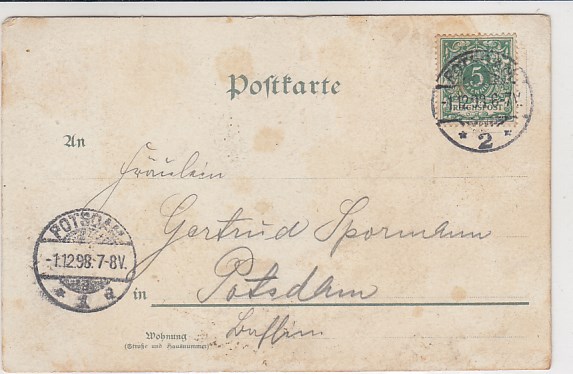 Postkarte
5
REICHSPOST
2
An
Fräulein
Gertrud Spormann
POTSDAM
-1.12.98.7-8V.
in Potsdam
Wohnung
(Straße und Hausnummer)